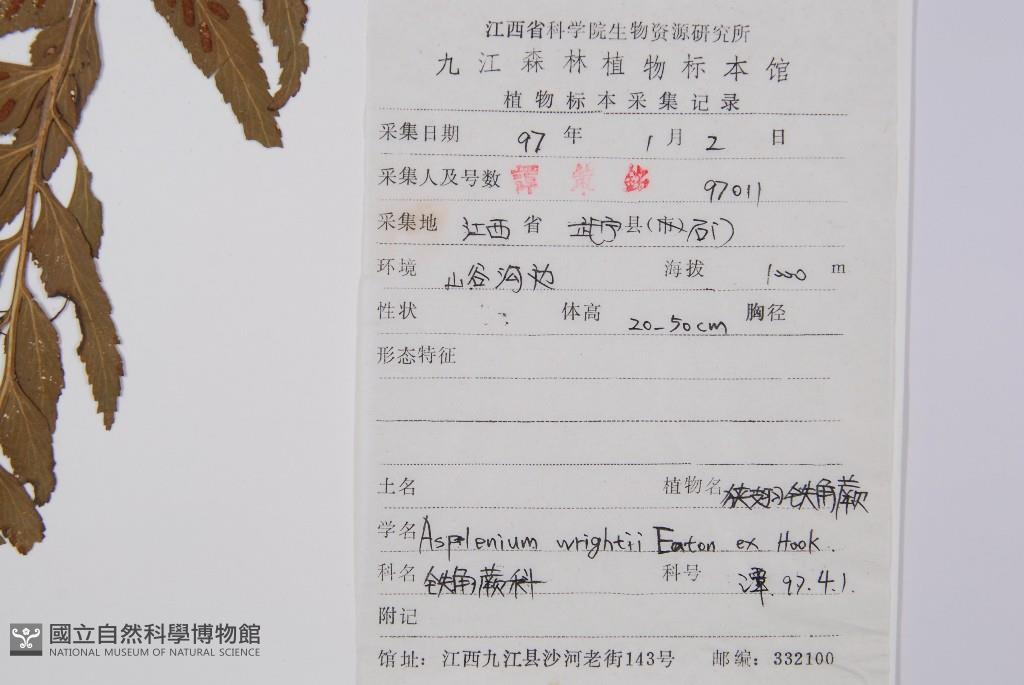 江西省科学院生物资源研究所
九江森林植物标本馆
植物标本采集记录
采集日期 97 年 1 月 2 日
采集人及号数 譚策銘 97011
采集地 江西 省 武宁 县(市) 石门
环境 山谷沟边 海拔 1000 m
性状 体高 20-50cm 胸径
形态特征
土名 植物名 狭翅铁角蕨
学名 Asplenium wrightii Eaton ex Hook.
科名 铁角蕨科 科号 譚. 97.4.1.
附记
馆址: 江西九江县沙河老街143号 邮编: 332100
國立自然科學博物館
NATIONAL MUSEUM OF NATURAL SCIENCE